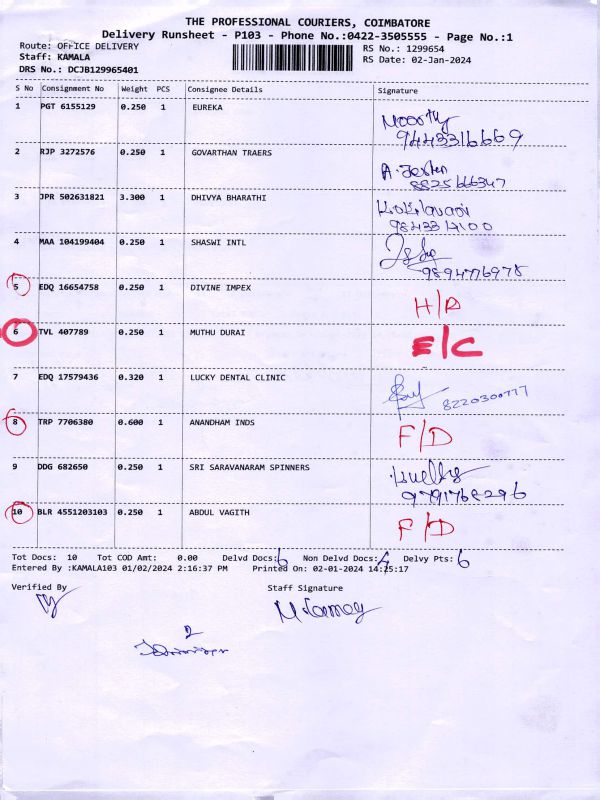 THE PROFESSIONAL COURIERS, COIMBATORE
Delivery Runsheet - P103 - Phone No.:0422-3505555 - Page No.:1
Route: OFFICE DELIVERY RS No.: 1299654
Staff: KAMALA RS Date: 02-Jan-2024
DRS No.: DCJB129965401
S No Consignment No Weight PCS Consignee Details Signature
1 PGT 6155129 0.250 1 EUREKA Moorthy
9443316669
2 RJP 3272576 0.250 1 GOVARTHAN TRAERS
8825666347
3 JPR 502631821 3.300 1 DHIVYA BHARATHI
4 MAA 104199404 0.250 1 SHASWI INTL
9894776978
5 EDQ 16654758 0.250 1 DIVINE IMPEX
H/D
6 TVL 407789 0.250 1 MUTHU DURAI
E/C
7 EDQ 17579436 0.320 1 LUCKY DENTAL CLINIC
8220300777
8 TRP 7706380 0.600 1 ANANDHAM INDS
F/D
9 DDG 682650 0.250 1 SRI SARAVANARAM SPINNERS
9791768296
10 BLR 4551203103 0.250 1 ABDUL VAGITH
F/D
Tot Docs: 10 Tot COD Amt: 0.00 Delvd Docs: 6 Non Delvd Docs: 4 Delvy Pts: 6
Entered By :KAMALA103 01/02/2024 2:16:37 PM Printed On: 02-01-2024 14:25:17
Verified By Staff Signature
2